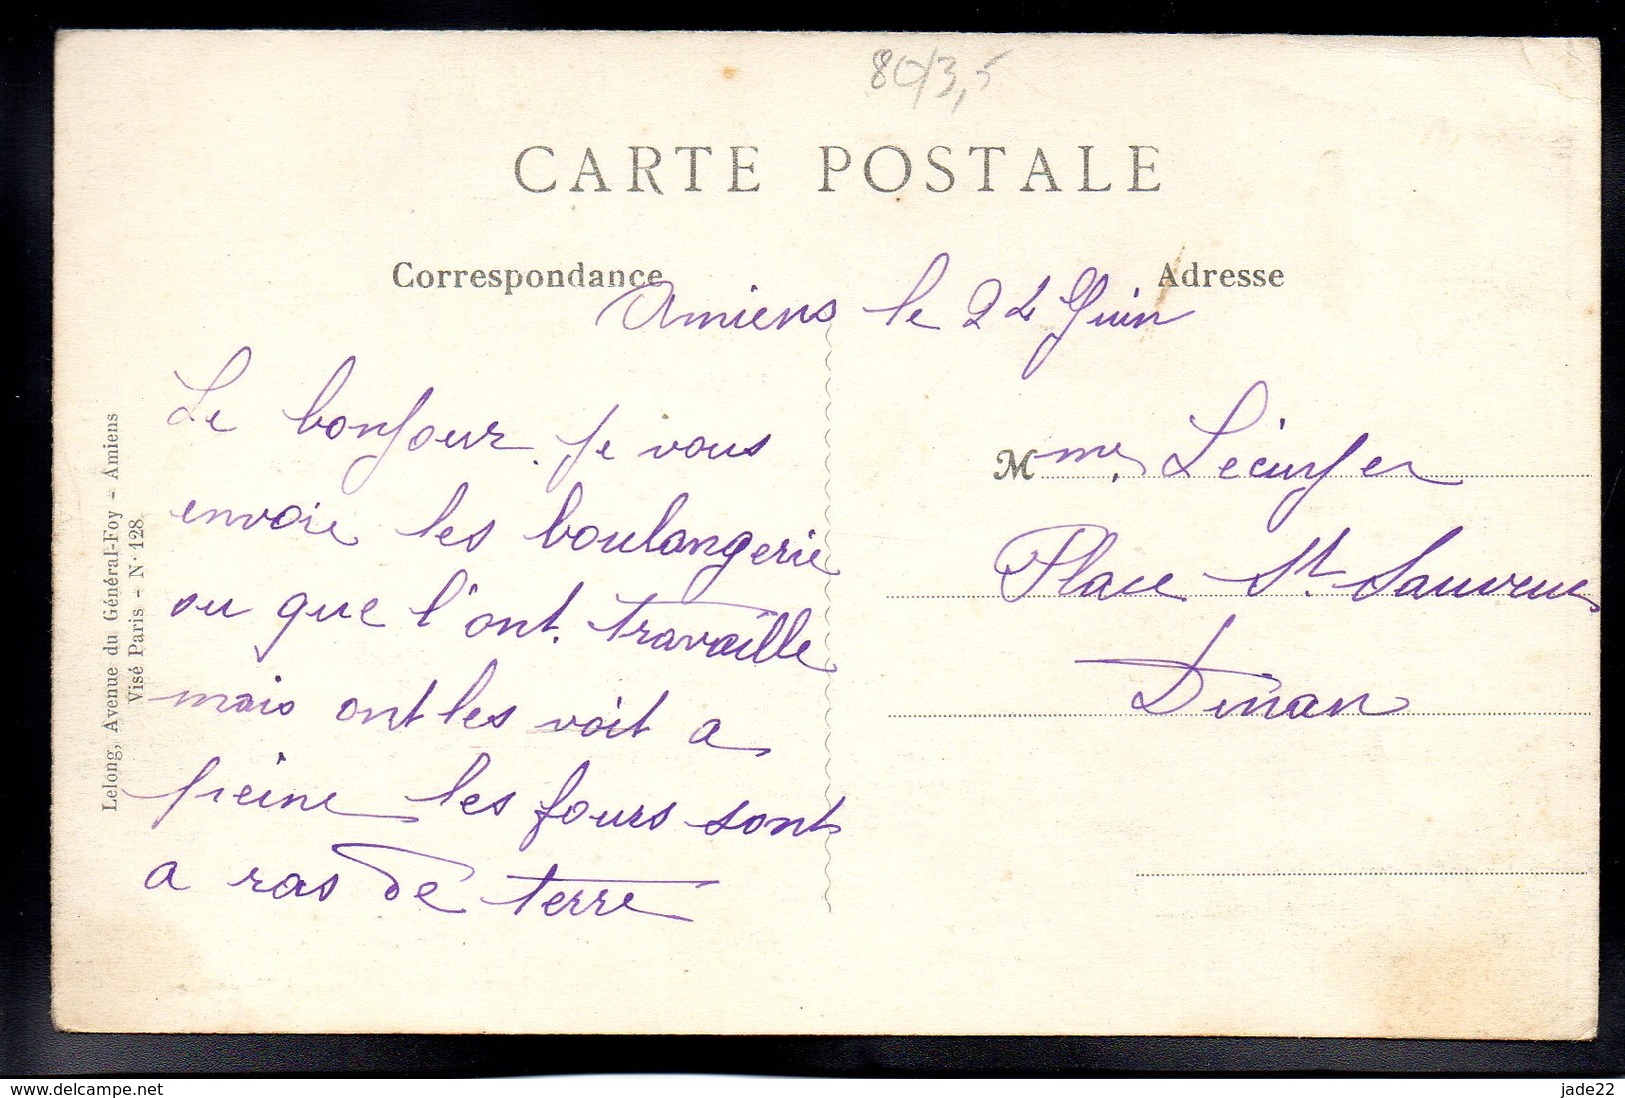 80/3,5
CARTE POSTALE
Correspondance
Adresse
Amiens le 24 Juin
Le bonjour. Je vous
envoie les boulangerie
ou que l'ont. travaille
mais ont les voit a
peine les fours sont
a ras de terre
Mme
Place St. Sauveur
Dinan
Lelong, Avenue du Général-Foy - Amiens
Visé Paris - N· 128
www.delcampe.net
jade22